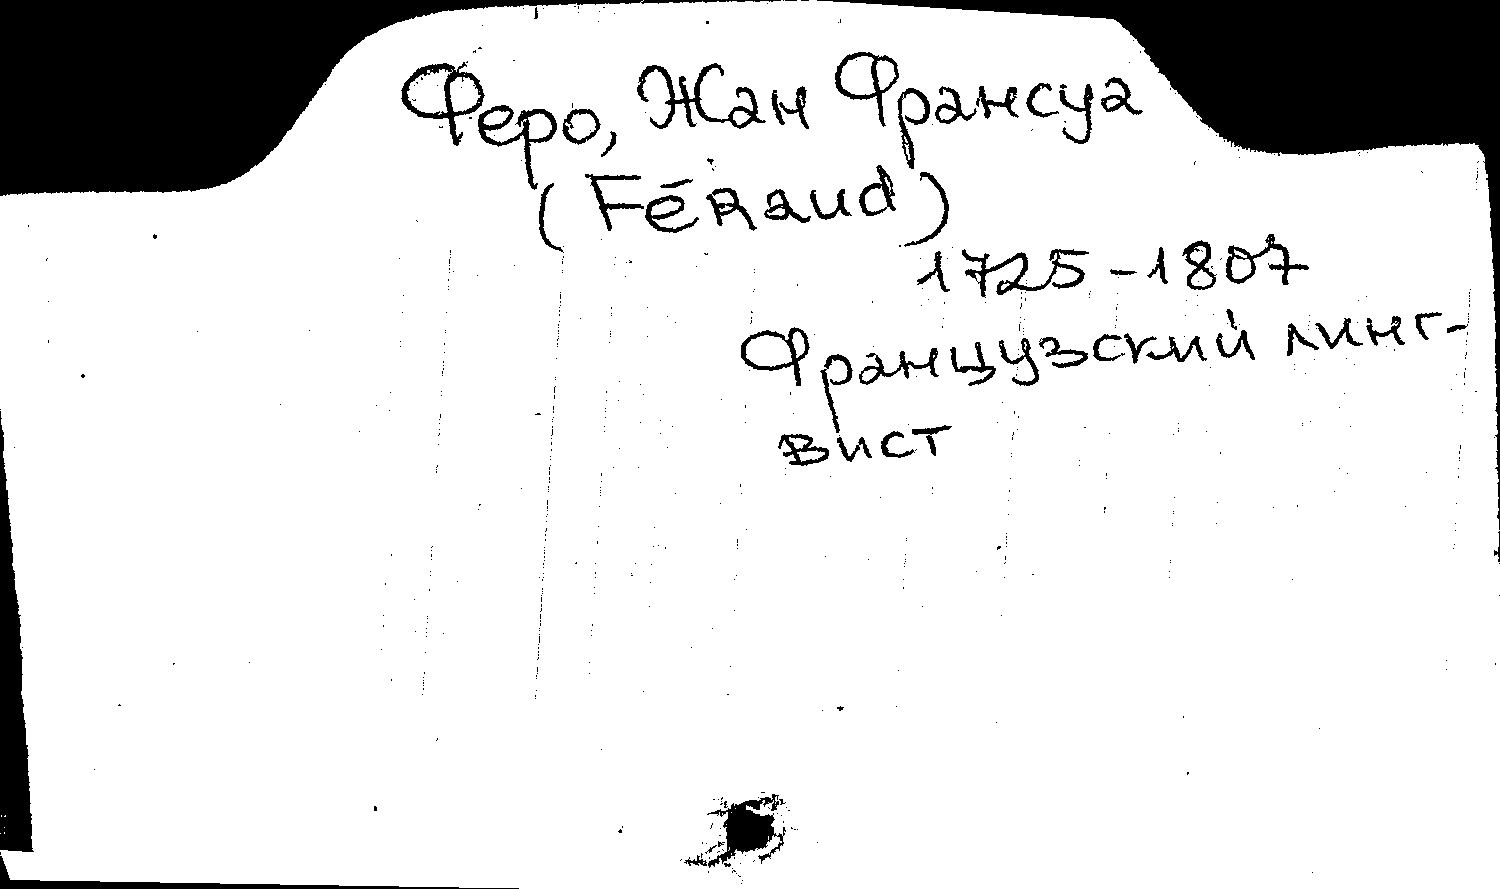 Феро, Жан Франсуа
(Féraud)
1725-1807
Французский линг-
вист